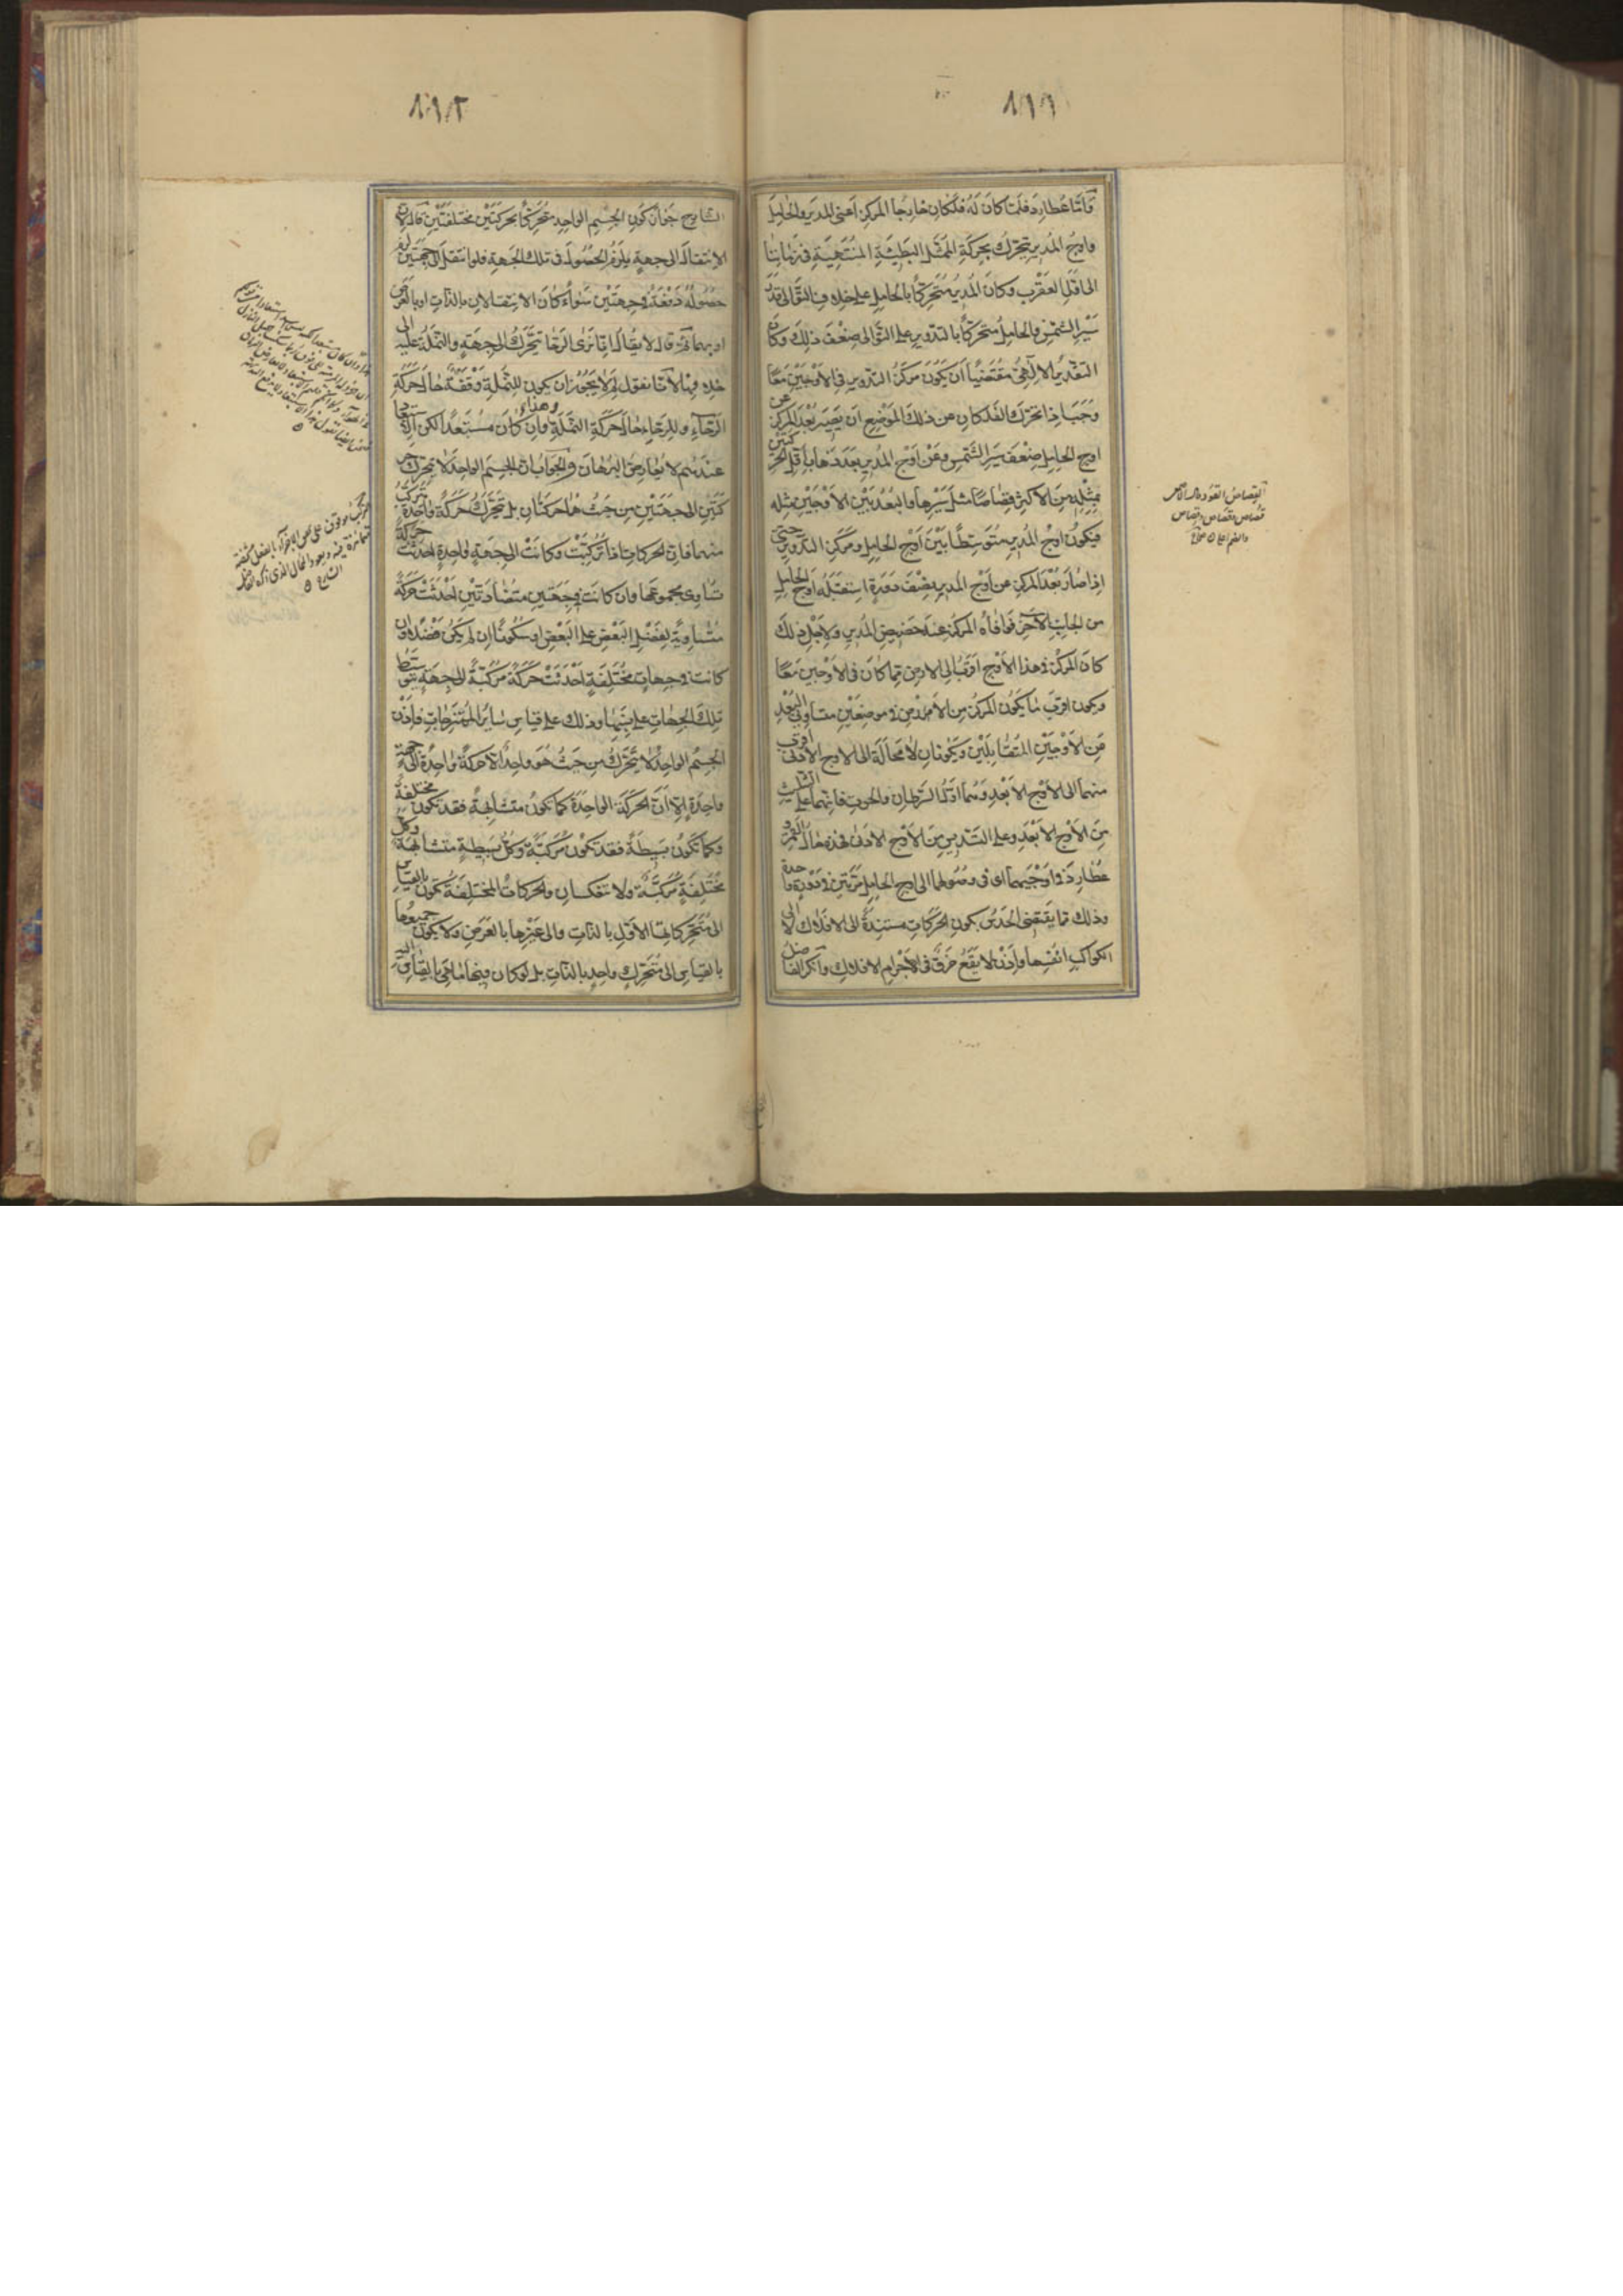 ٨٩١
وأمّا عطارد فلمّا كان له فلكان خارجا المركز أعنى المدير والحامل
واوج المدير يتحرك بحركة الممثل البطيئة المنتهية فى زماننا
الى اول العقرب وكان المدير متحركا بالحامل على خلاف التوالى قدر
سير الشمس والحامل متحركا بالتدوير على التوالى ضعف ذلك وكان
التقدير الالهى مقتضيا ان يكون مركز التدوير فى الاوجين معا
وجب اذا تحرك الفلكان عن ذلك الموضع ان يصير بعد المركز عن
اوج الحامل ضعف سير الشمس وعن اوج المدير بعد ذهاب اقل الحركتين
بمثله من الاكثر قصاصا مثل سيرها والبعد بين الاوجين مثله
فيكون اوج المدير متوسطا بين اوج الحامل ومركز التدوير حتى
اذا صار بعد المركز عن اوج المدير نصف دورة استقبله اوج الحامل
من الجانب الآخر فوافاه المركز عند حضيض المدير ولاجل ذلك
كان المركز فى هذا الاوج اقرب الى الارض مما كان فى الاوجين معا
ويكون اقرب ما يكون المركز من الارض فى موضعين متساويى البعد
عن الاوجين المتقابلين ويكونان لا محالة الى الاوج الادنى اقرب
منهما الى الاوج الابعد وهما اول السرطان والحوت فانهما على التثليث
من الاوج الابعد وعلى التسديس من الاوج الادنى فهذه حال القمر و
عطارد فى اوجيهما اى فى وصولهما الى اوج الحامل مرتين فى دورة واحدة
وذلك مما يقتضى الحدس بكون الحركات مستندة الى الافلاك لا الى
الكواكب انفسها واذن لا يقع خرق فى الاجرام الافلاك وانكر الفاضل
القصاص القود وقال الاخفش
قصاص وقصاص وقصاص
٨٩٢
الشارح جواز كون الجسم الواحد متحركا بحركتين مختلفتين قال لان
الانتقال الى جهة يلزمه الحصول فى تلك الجهة فلو انتقل الى جهتين لزم
حصوله دفعة فى جهتين سواء كان الانتقالان بالذات او بالعرض
او بهما ثم قال لا يقال انا نرى الرحا تتحرك الى جهة والنملة عليها الى
خلافها لانا نقول لم لا يجوز ان يكون للنملة وقفة حال حركة
الرحا وللرحا حال حركة النملة وهذا وان كان مستبعدا لكن الاستبعاد
عندهم لا يعارض البرهان والجواب ان الجسم الواحد لا يتحرك حر
كتين الى جهتين من حيث هما حركتان بل يتحرك حركة واحدة تتركب
منهما فان الحركات اذا تركبت وكانت الى جهة واحدة احدثت حركة
تساوى مجموعها وان كانت فى جهتين متضادتين احدثت حركة
مساوية لفضل البعض على البعض او سكونا ان لم يكن فضل وان
كانت فى جهات مختلفة احدثت حركة مركبة الى جهة يتوسط
تلك الجهات على نسبتها وذلك على قياس سائر الممتزجات فاذن
الجسم الواحد لا يتحرك من حيث هو واحد الا حركة واحدة الى جهة
واحدة الا ان الحركة الواحدة كما تكون متشابهة فقد تكون مختلفة
وكما تكون بسيطة فقد تكون مركبة وكل بسيطة متشابهة وكل
مختلفة مركبة ولا تنعكسان والحركات المختلفة تكون بالقياس
الى متحركاتها الاول بالذات والى غيرها بالعرض ولا يكون جميعها
بالقياس الى متحرك واحد بالذات بل لو كان فيها ما هى بالقياس اليه